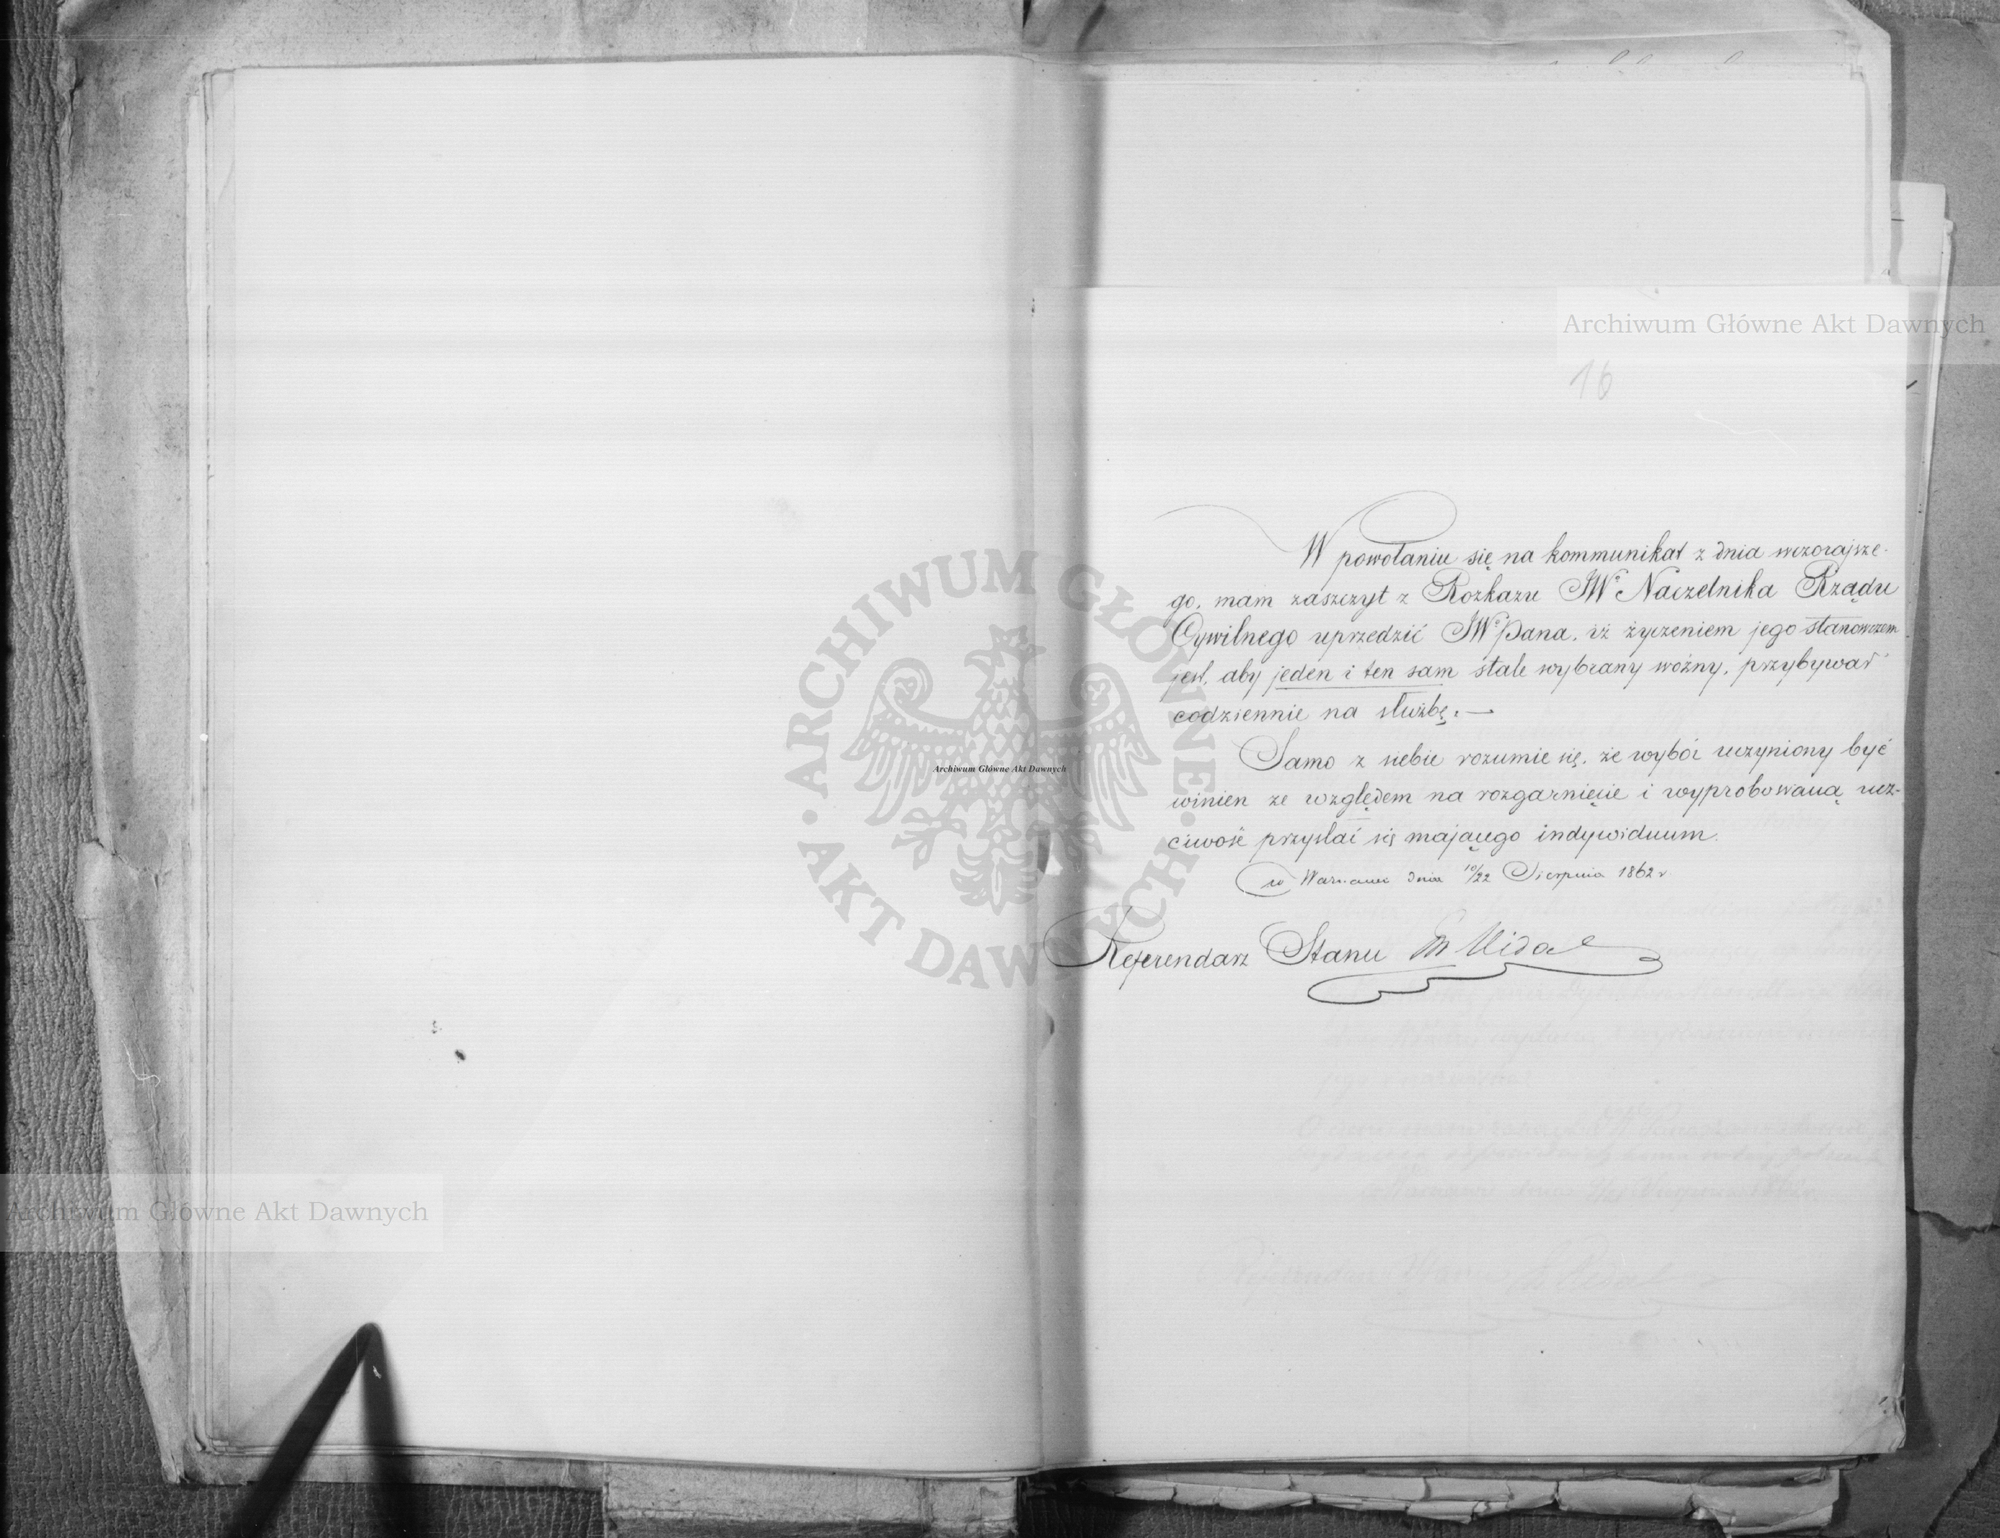 Archiwum Główne Akt Dawnych
16
W powołaniu się na kommunikat z dnia wczorajsze-
go, mam zaszczyt z Rozkazu JWo Naczelnika Rządu
Cywilnego uprzedzić JWo Pana, iż życzeniem jego stanowczem
jest, aby jeden i ten sam stale wybrany woźny, przybywał
codziennie na służbę.—
Samo z siebie rozumie się, że wybór uczyniony być
winien ze względem na rozgarnięcie i wypróbowaną ucz-
ciwość przysłać się mającego indywiduum.
w Warszawie dnia 10/22 Sierpnia 1862 r
Referendarz Stanu
ARCHIWUM GŁÓWNE AKT DAWNYCH
Archiwum Główne Akt Dawnych
Archiwum Główne Akt Dawnych